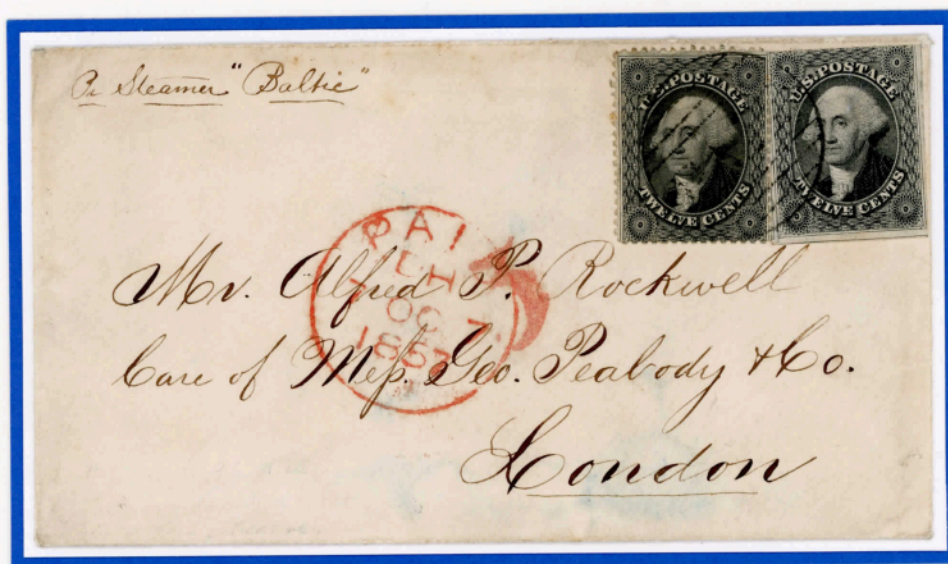 Pr Steamer "Baltic"
U.S. POSTAGE
TWELVE CENTS
U.S. POSTAGE
TWELVE CENTS
PAID
OC 7
1857
3
Mr. Alfred P. Rockwell
Care of Mess. Geo. Peabody & Co.
London